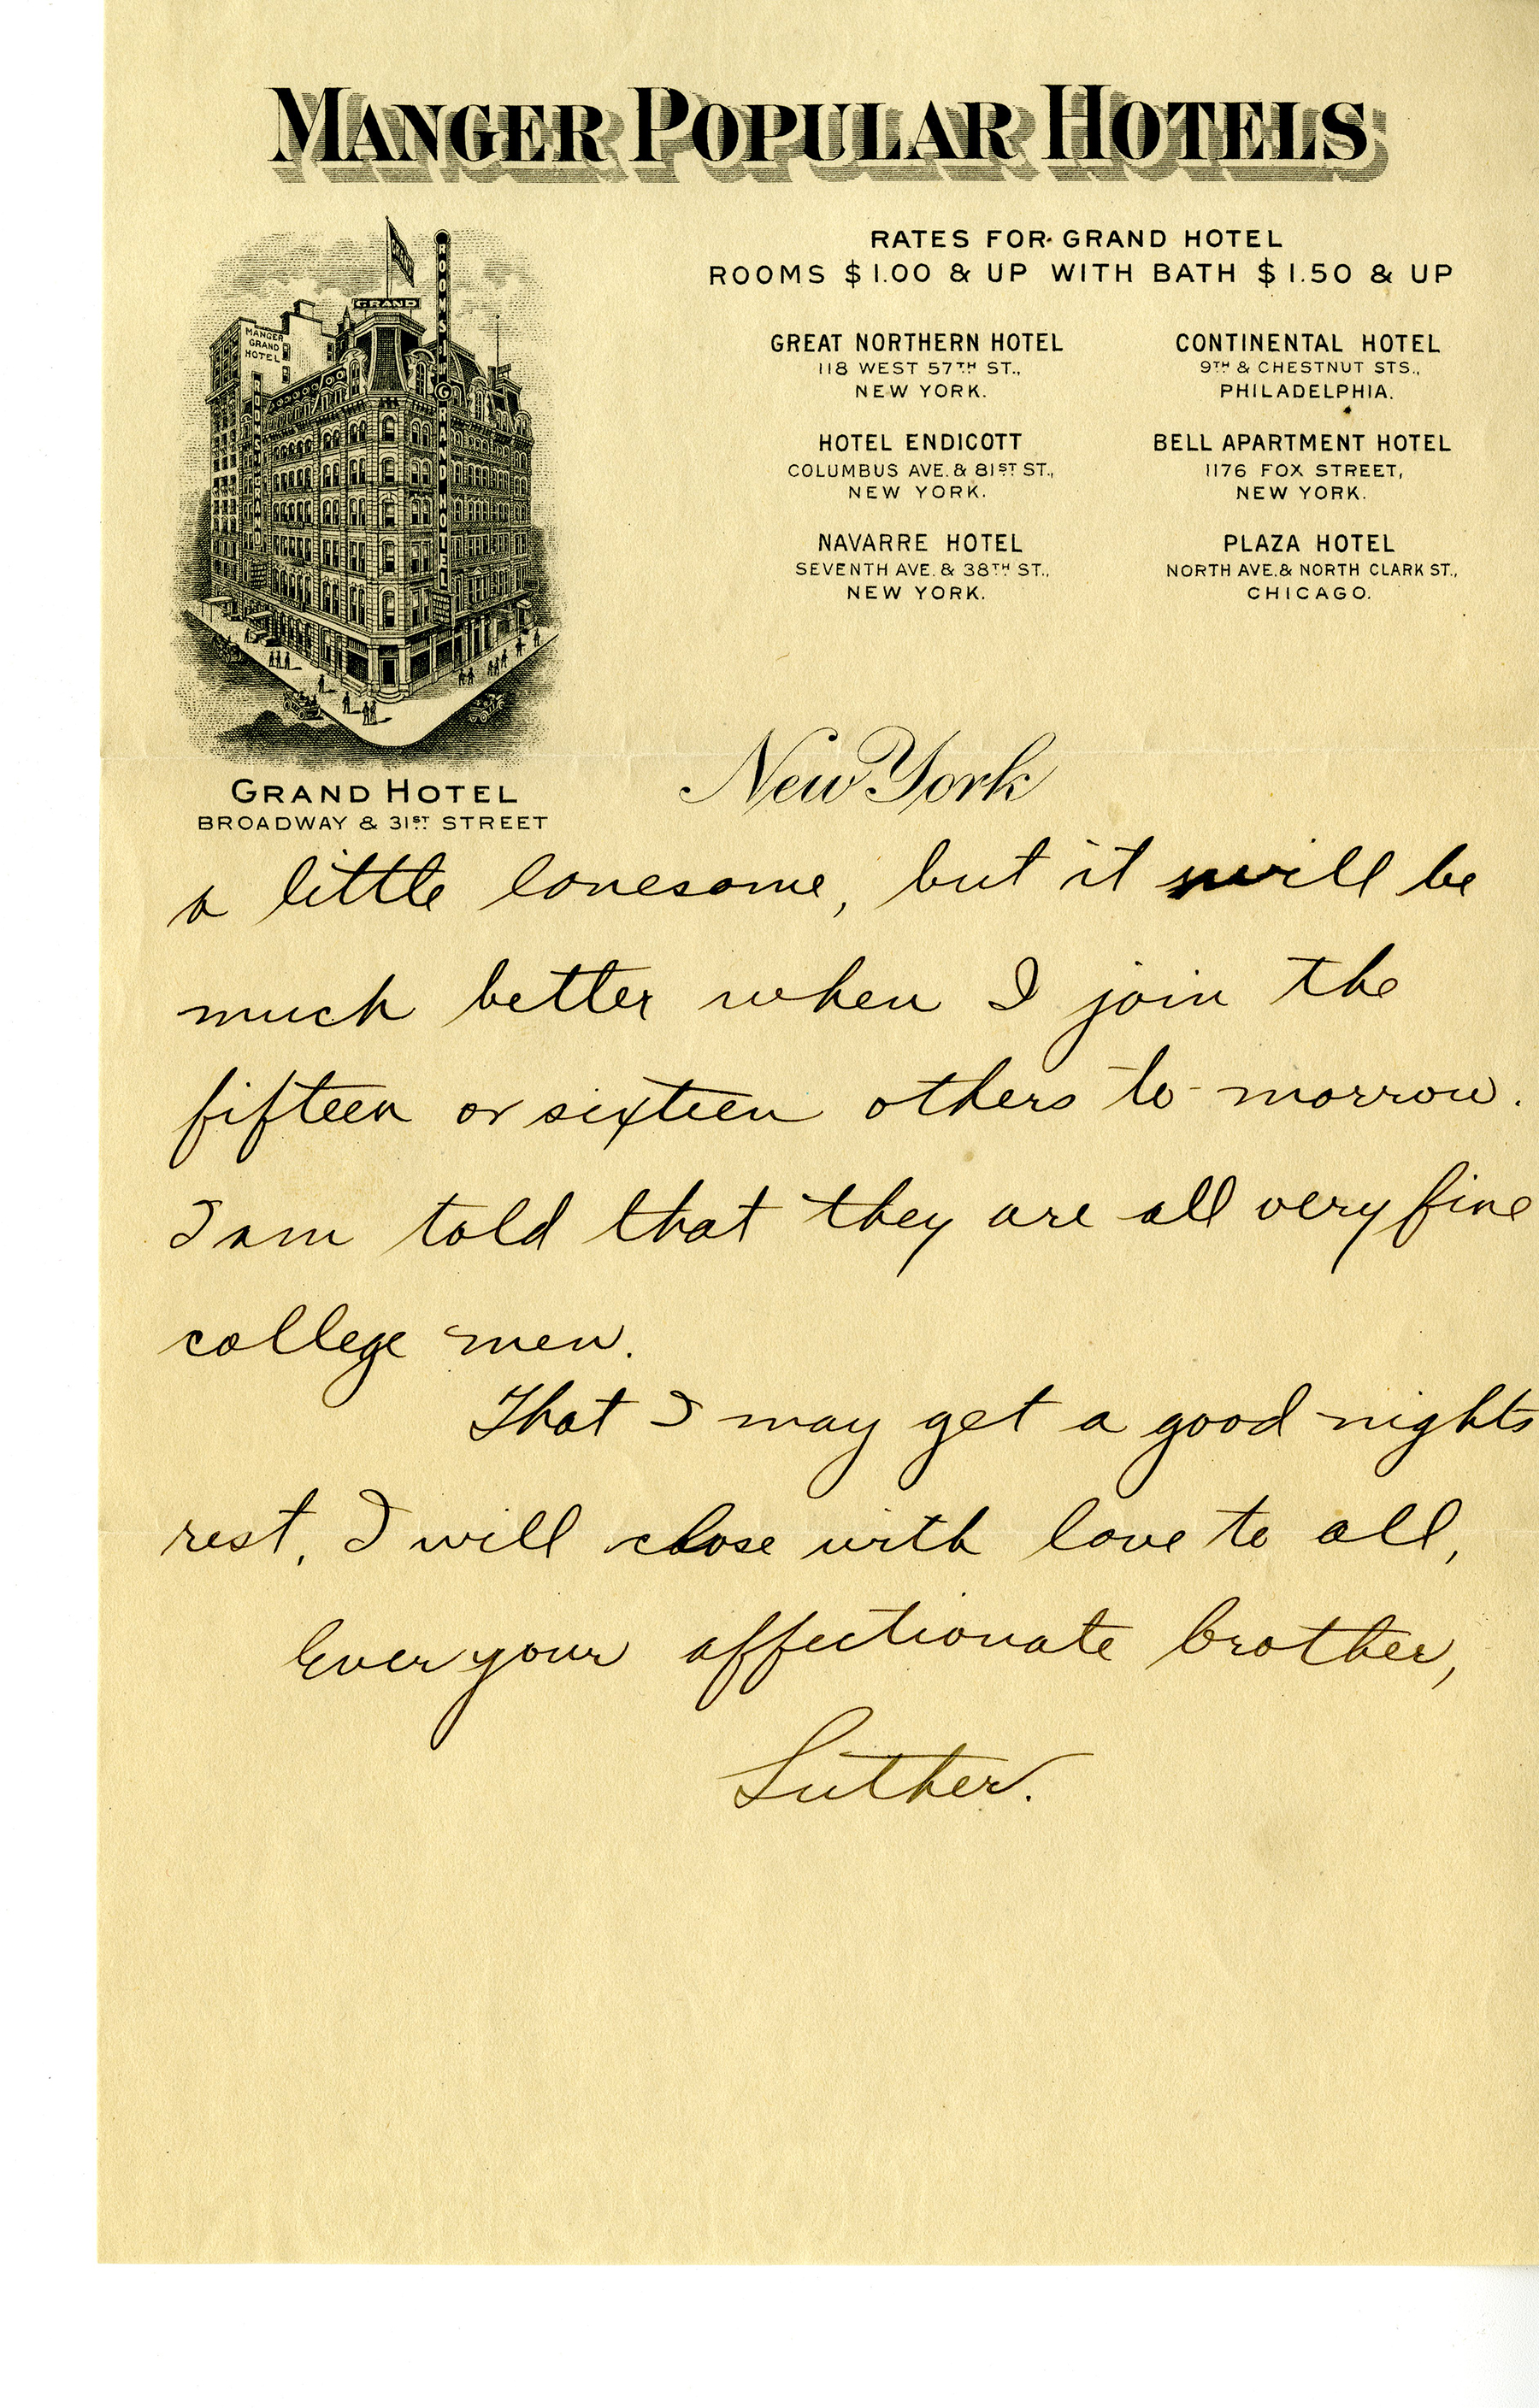 MANGER POPULAR HOTELS
RATES FOR GRAND HOTEL
ROOMS $1.00 & UP WITH BATH $1.50 & UP
GREAT NORTHERN HOTEL
118 WEST 57TH ST.,
NEW YORK.
CONTINENTAL HOTEL
9TH & CHESTNUT STS.,
PHILADELPHIA.
HOTEL ENDICOTT
COLUMBUS AVE. & 81ST ST.,
NEW YORK.
BELL APARTMENT HOTEL
1176 FOX STREET,
NEW YORK.
NAVARRE HOTEL
SEVENTH AVE. & 38TH ST.,
NEW YORK.
PLAZA HOTEL
NORTH AVE. & NORTH CLARK ST.,
CHICAGO.
GRAND
ROOMS GRAND HOTEL
MANGER
GRAND
HOTEL
GRAND HOTEL
BROADWAY & 31ST STREET
New York
a little lonesome, but it will be
much better when I join the
fifteen or sixteen others to-morrow.
I am told that they are all very fine
college men.
That I may get a good nights
rest, I will close with love to all,
Ever your affectionate brother,
Luther.